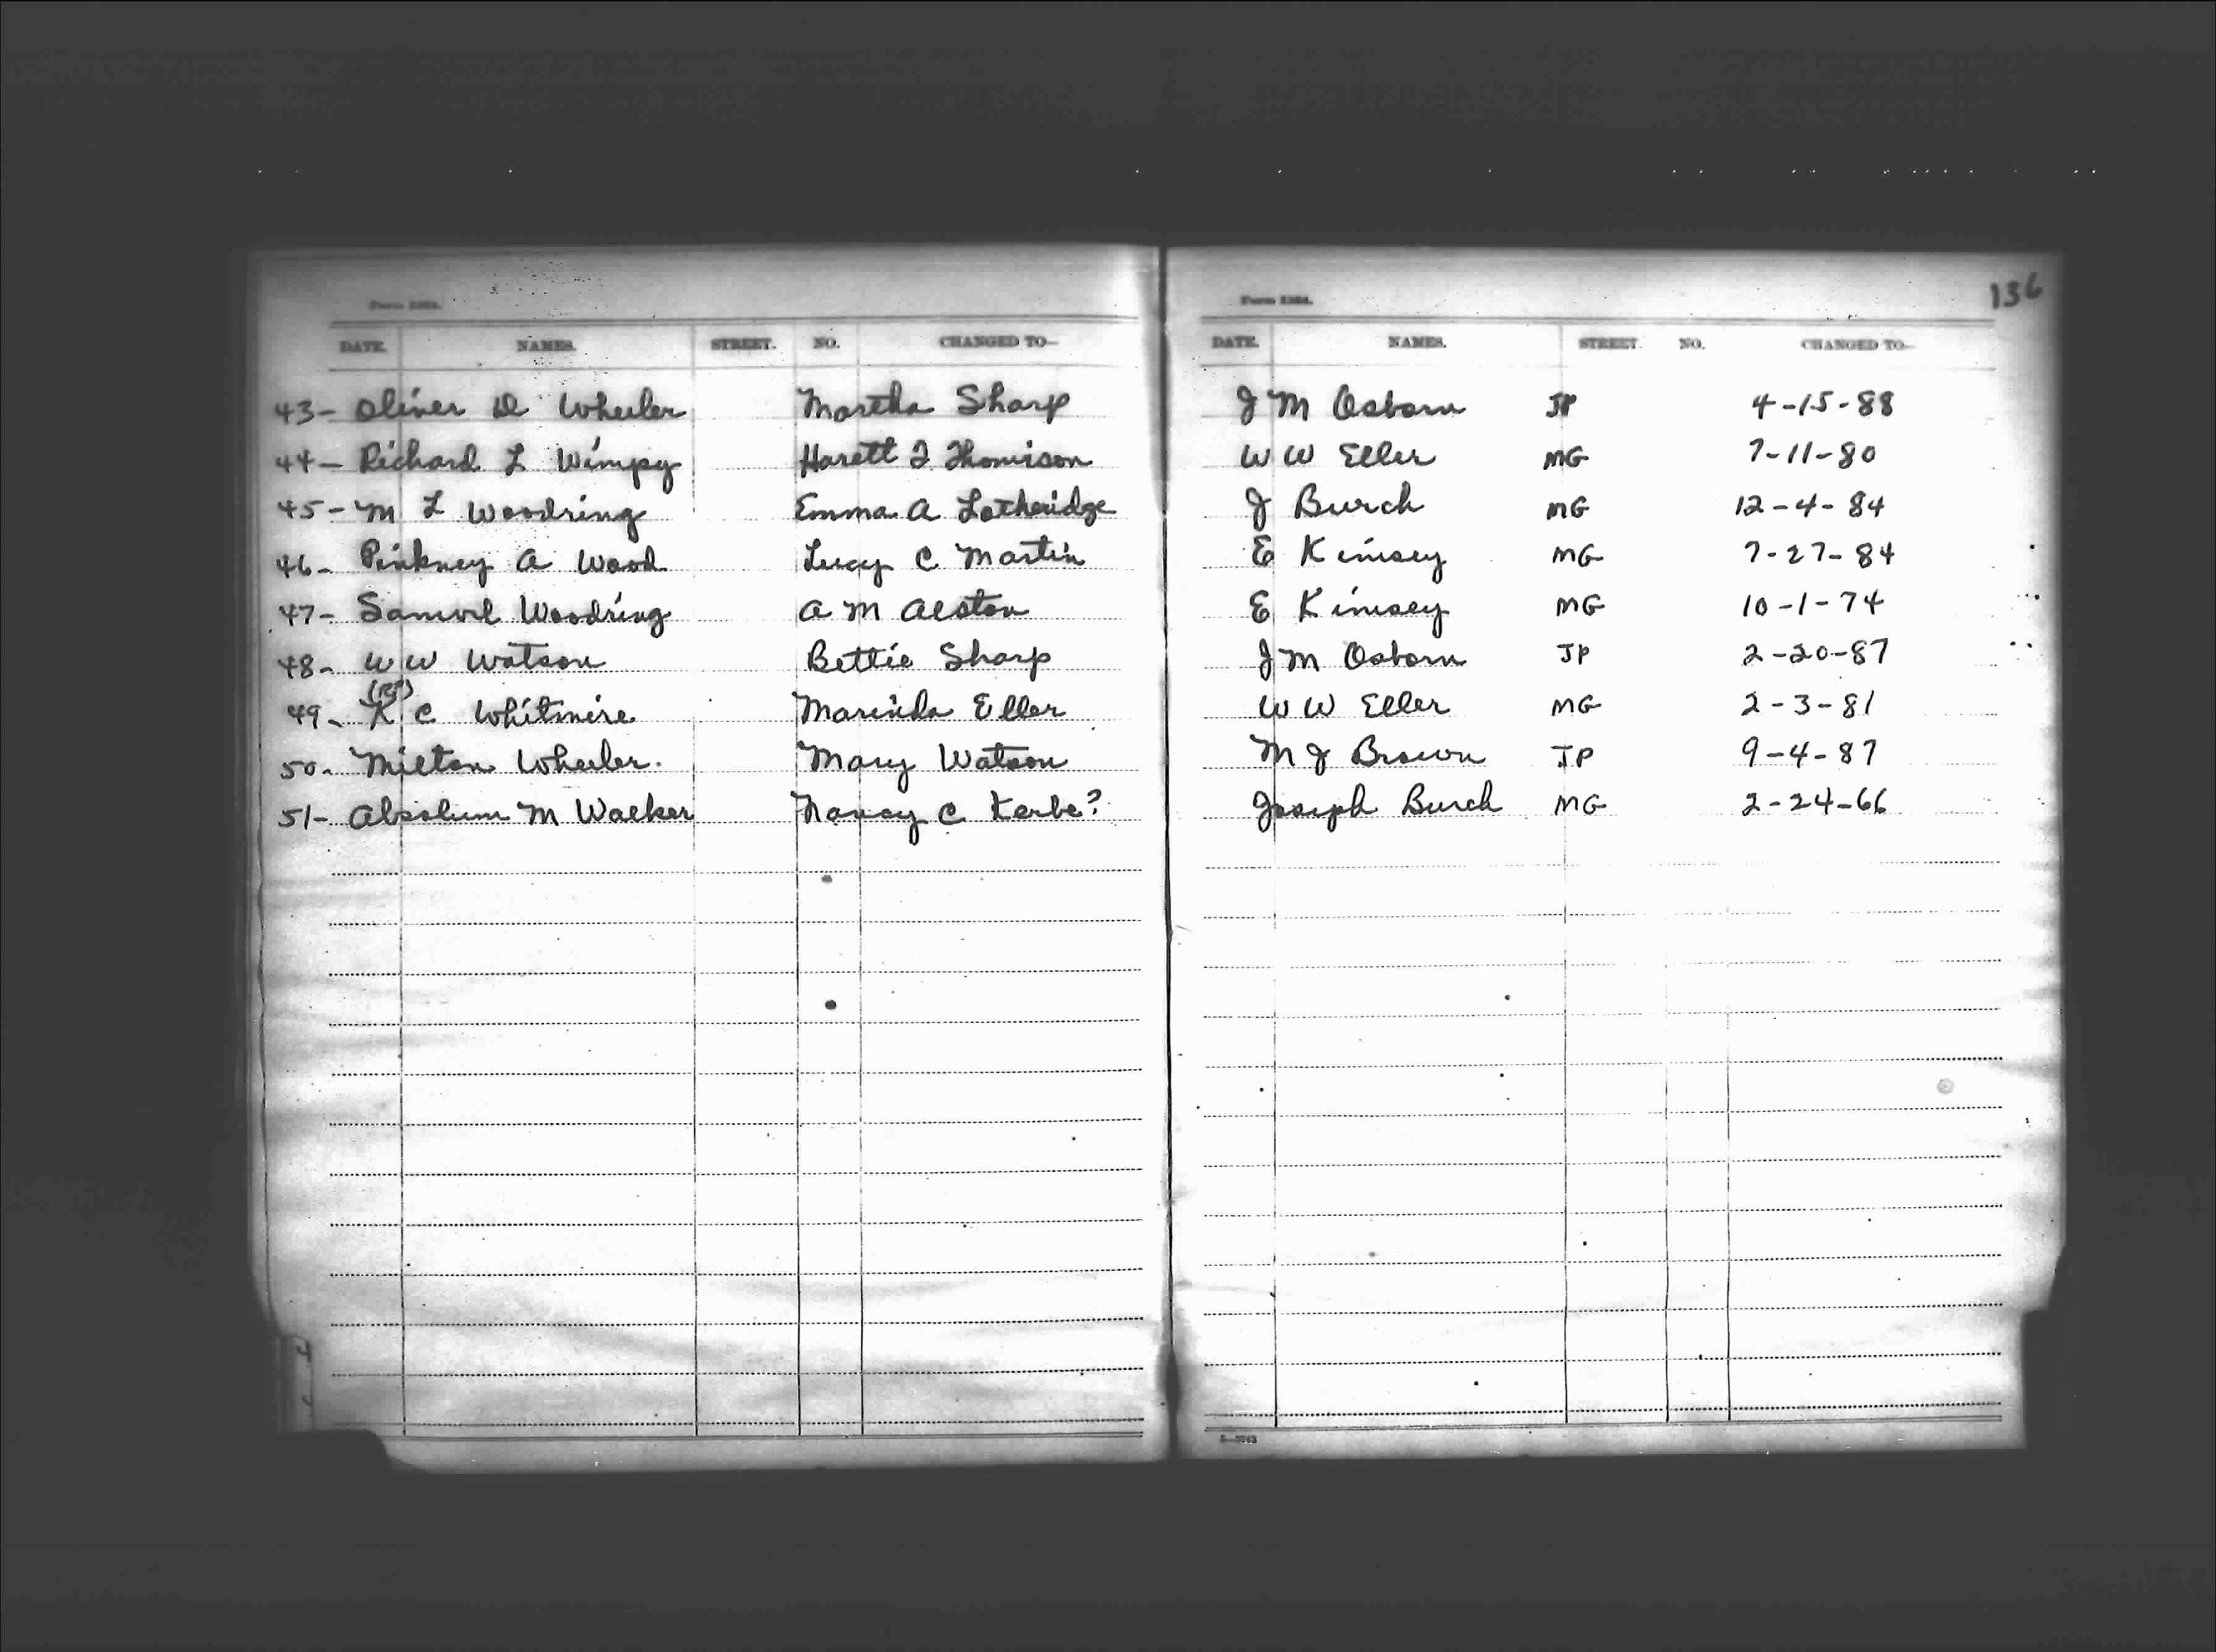 136
Form 1364. Form 1364.
DATE. NAMES. STREET. NO. CHANGED TO— DATE. NAMES. STREET. NO. CHANGED TO—
43- Oliver D Wheeler Martha Sharp J M Osborn JP 4-15-88
44- Richard L Wimpy Harett F Thomison W W Eller MG 7-11-80
45- M L Woodring Emma A Lotheridge J Burch MG 12-4-84
46- Pinkney A Wood Lucy C Martin E Kimsey MG 7-27-84
47- Samuel Woodring A M Alston E Kimsey MG 10-1-74
48- W W Watson Bettie Sharp J M Osborn JP 2-20-87
49- K C Whitmire Marinda Eller W W Eller MG 2-3-81
50- Milton Wheeler. Mary Watson M J Brown JP 9-4-87
51- Absolum M Walker Nancy C Kerbe? Joseph Burch MG 2-24-66